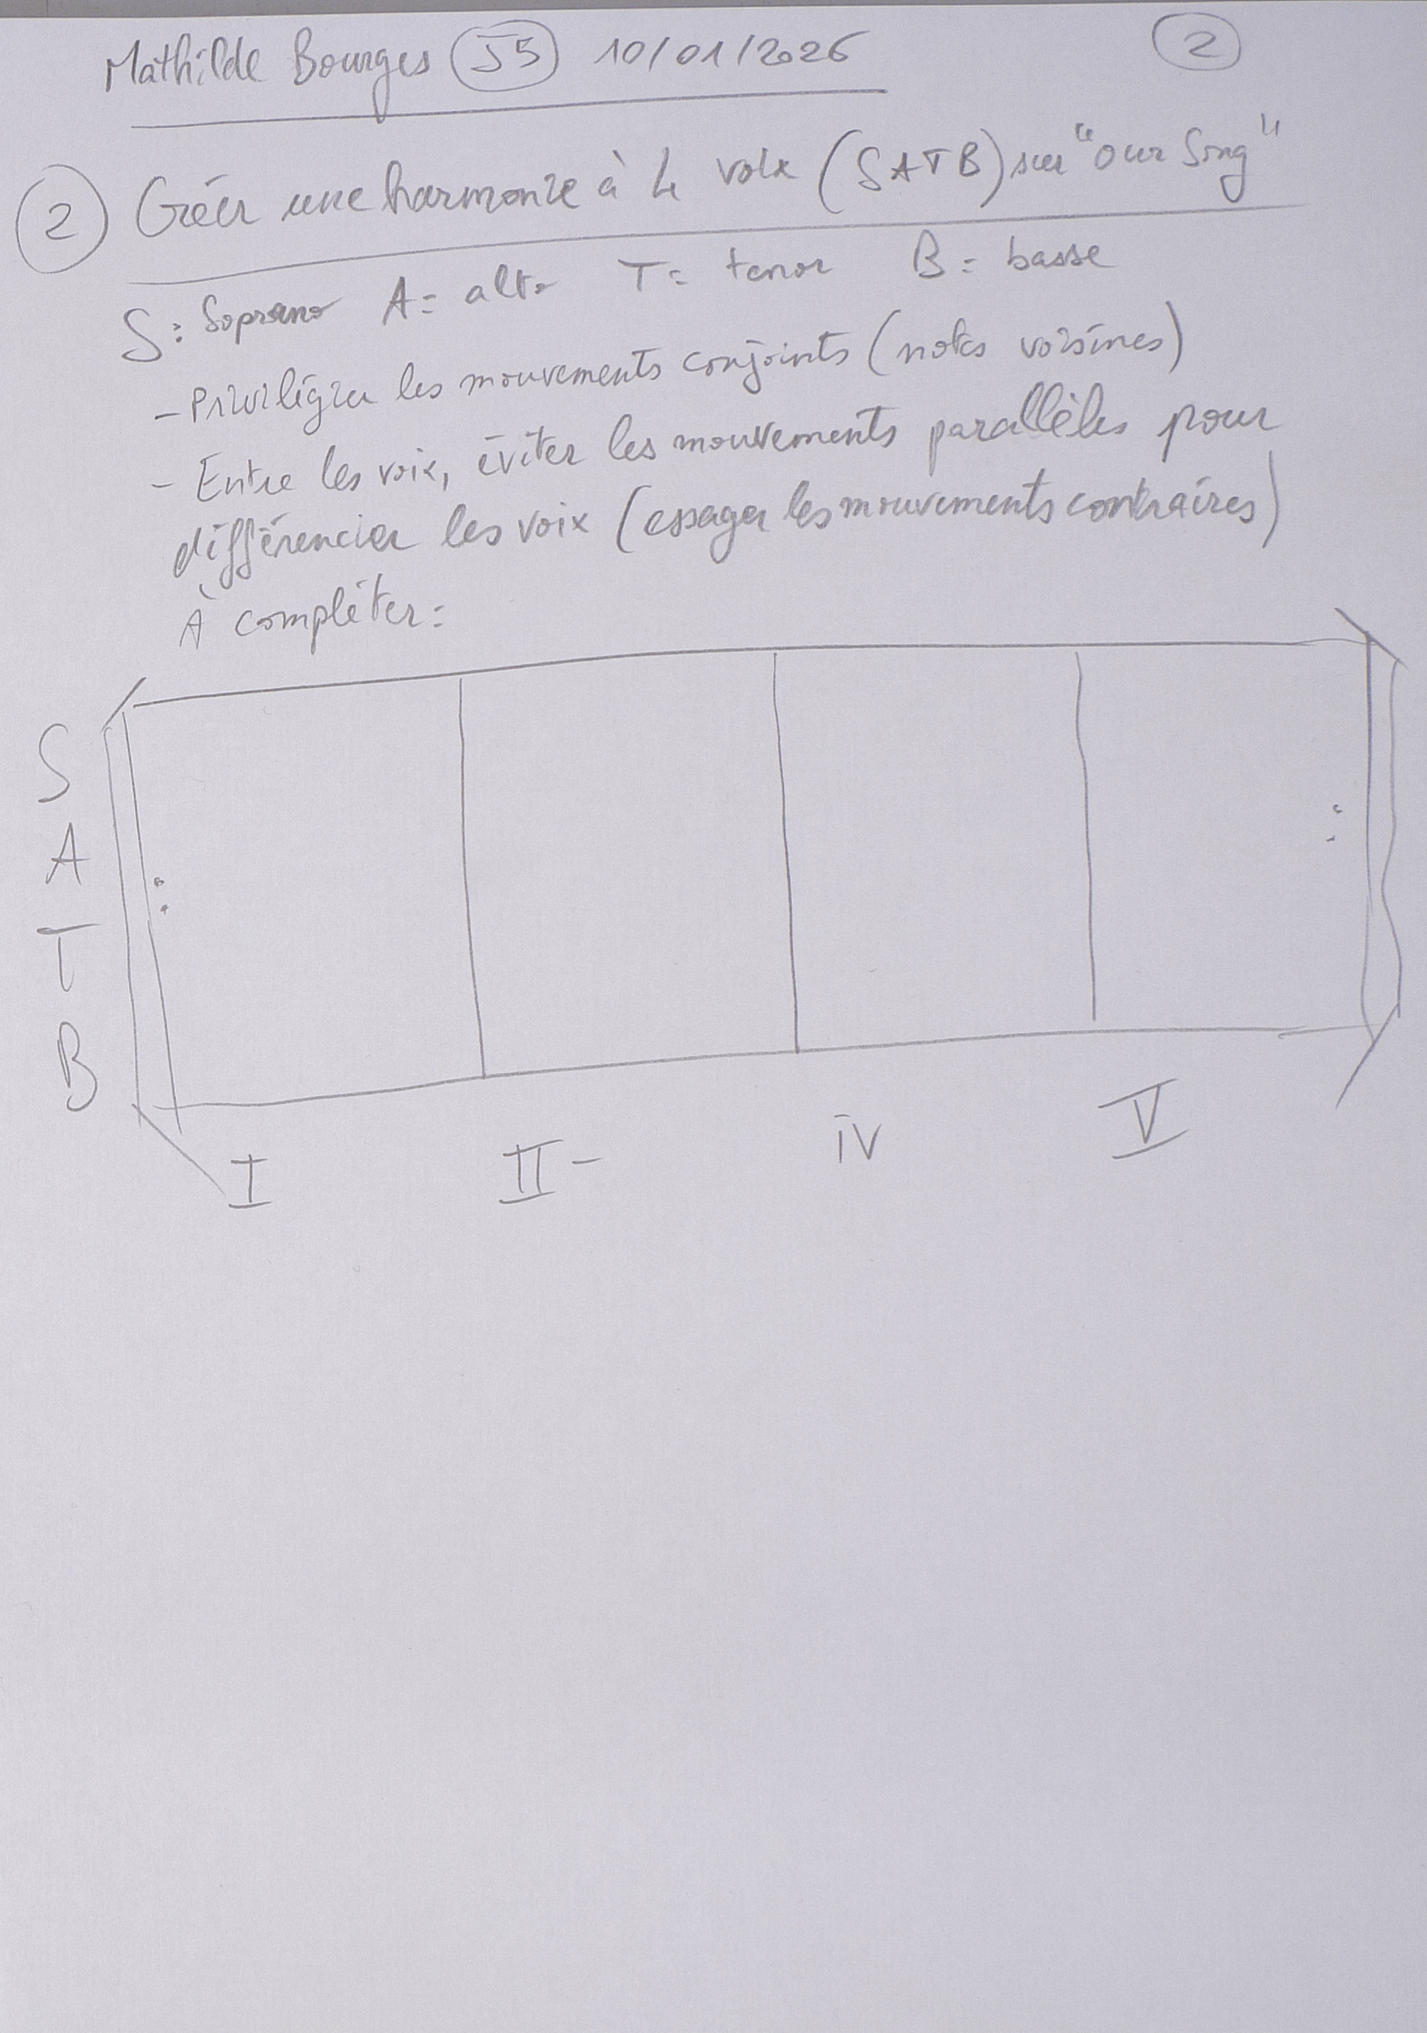 Mathilde Bourges J5 10/01/2026 2
2 Créer une harmonie à 4 voix (SATB) sur "Our Song"
S: Soprano A= alto T= tenor B= basse
- Privilégier les mouvements conjoints (notes voisines)
- Entre les voix, éviter les mouvements parallèles pour
différencier les voix (essayer les mouvements contraires)
À compléter:
S
A
T
B
I II- iv V